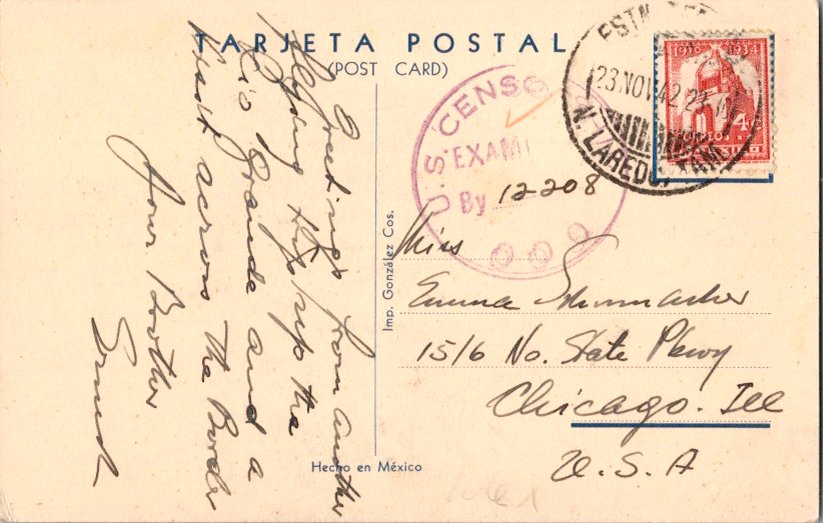 TARJETA POSTAL
(POST CARD)
Greetings from another
flying trip up the
Rio Grande and a
visit across the Border
Your Brother
Imp. González Cos.
Hecho en México
U.S. CENSO
EXAMI
By 12208
23 NOV 42
N. LAREDO, TAM
1934
Miss
Emma
1516 No. State Pkwy
Chicago. Ill
U.S.A